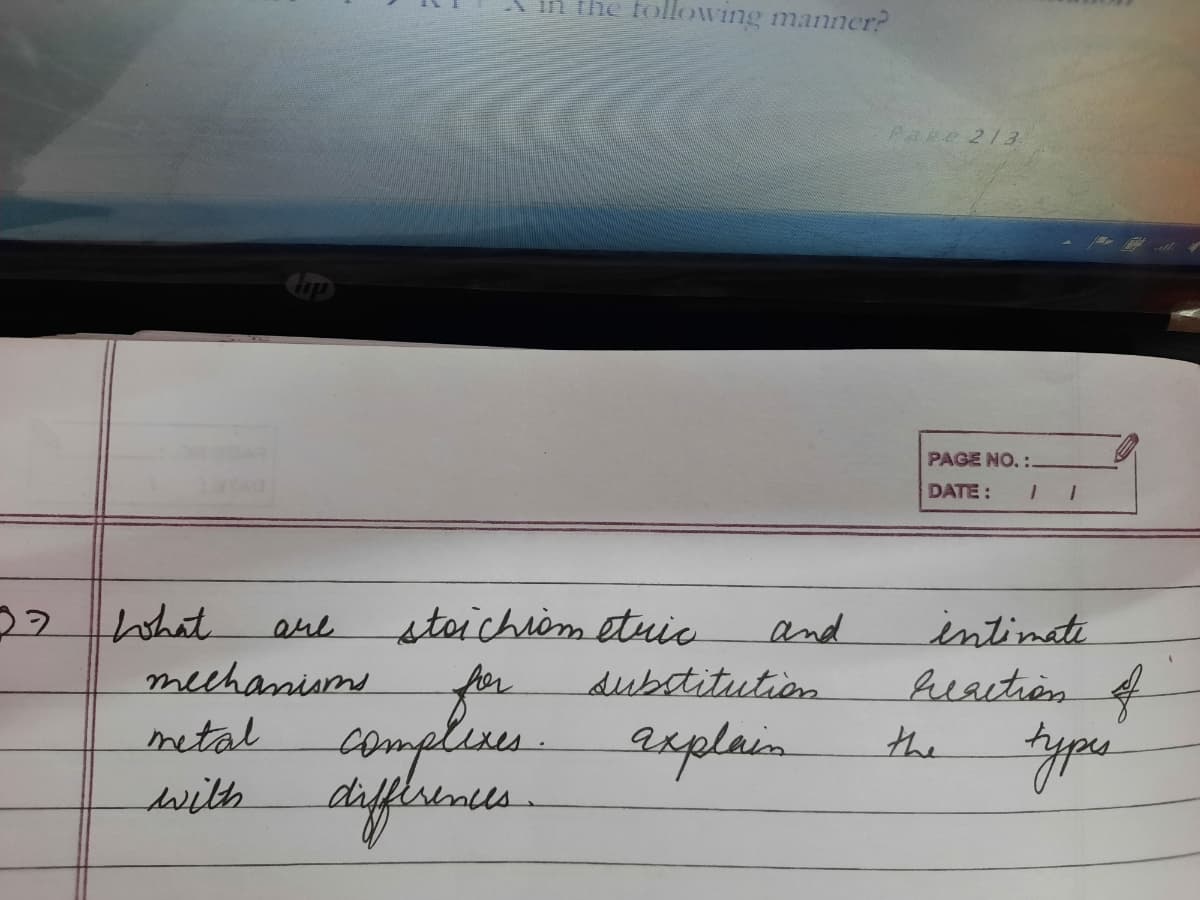 in the following manner?
Page 213
hp
PAGE NO. :
DATE : / /
What are stoichiometric and intimate
mechanisms for substitution reaction of
metal complexes. explain the types
with differences.